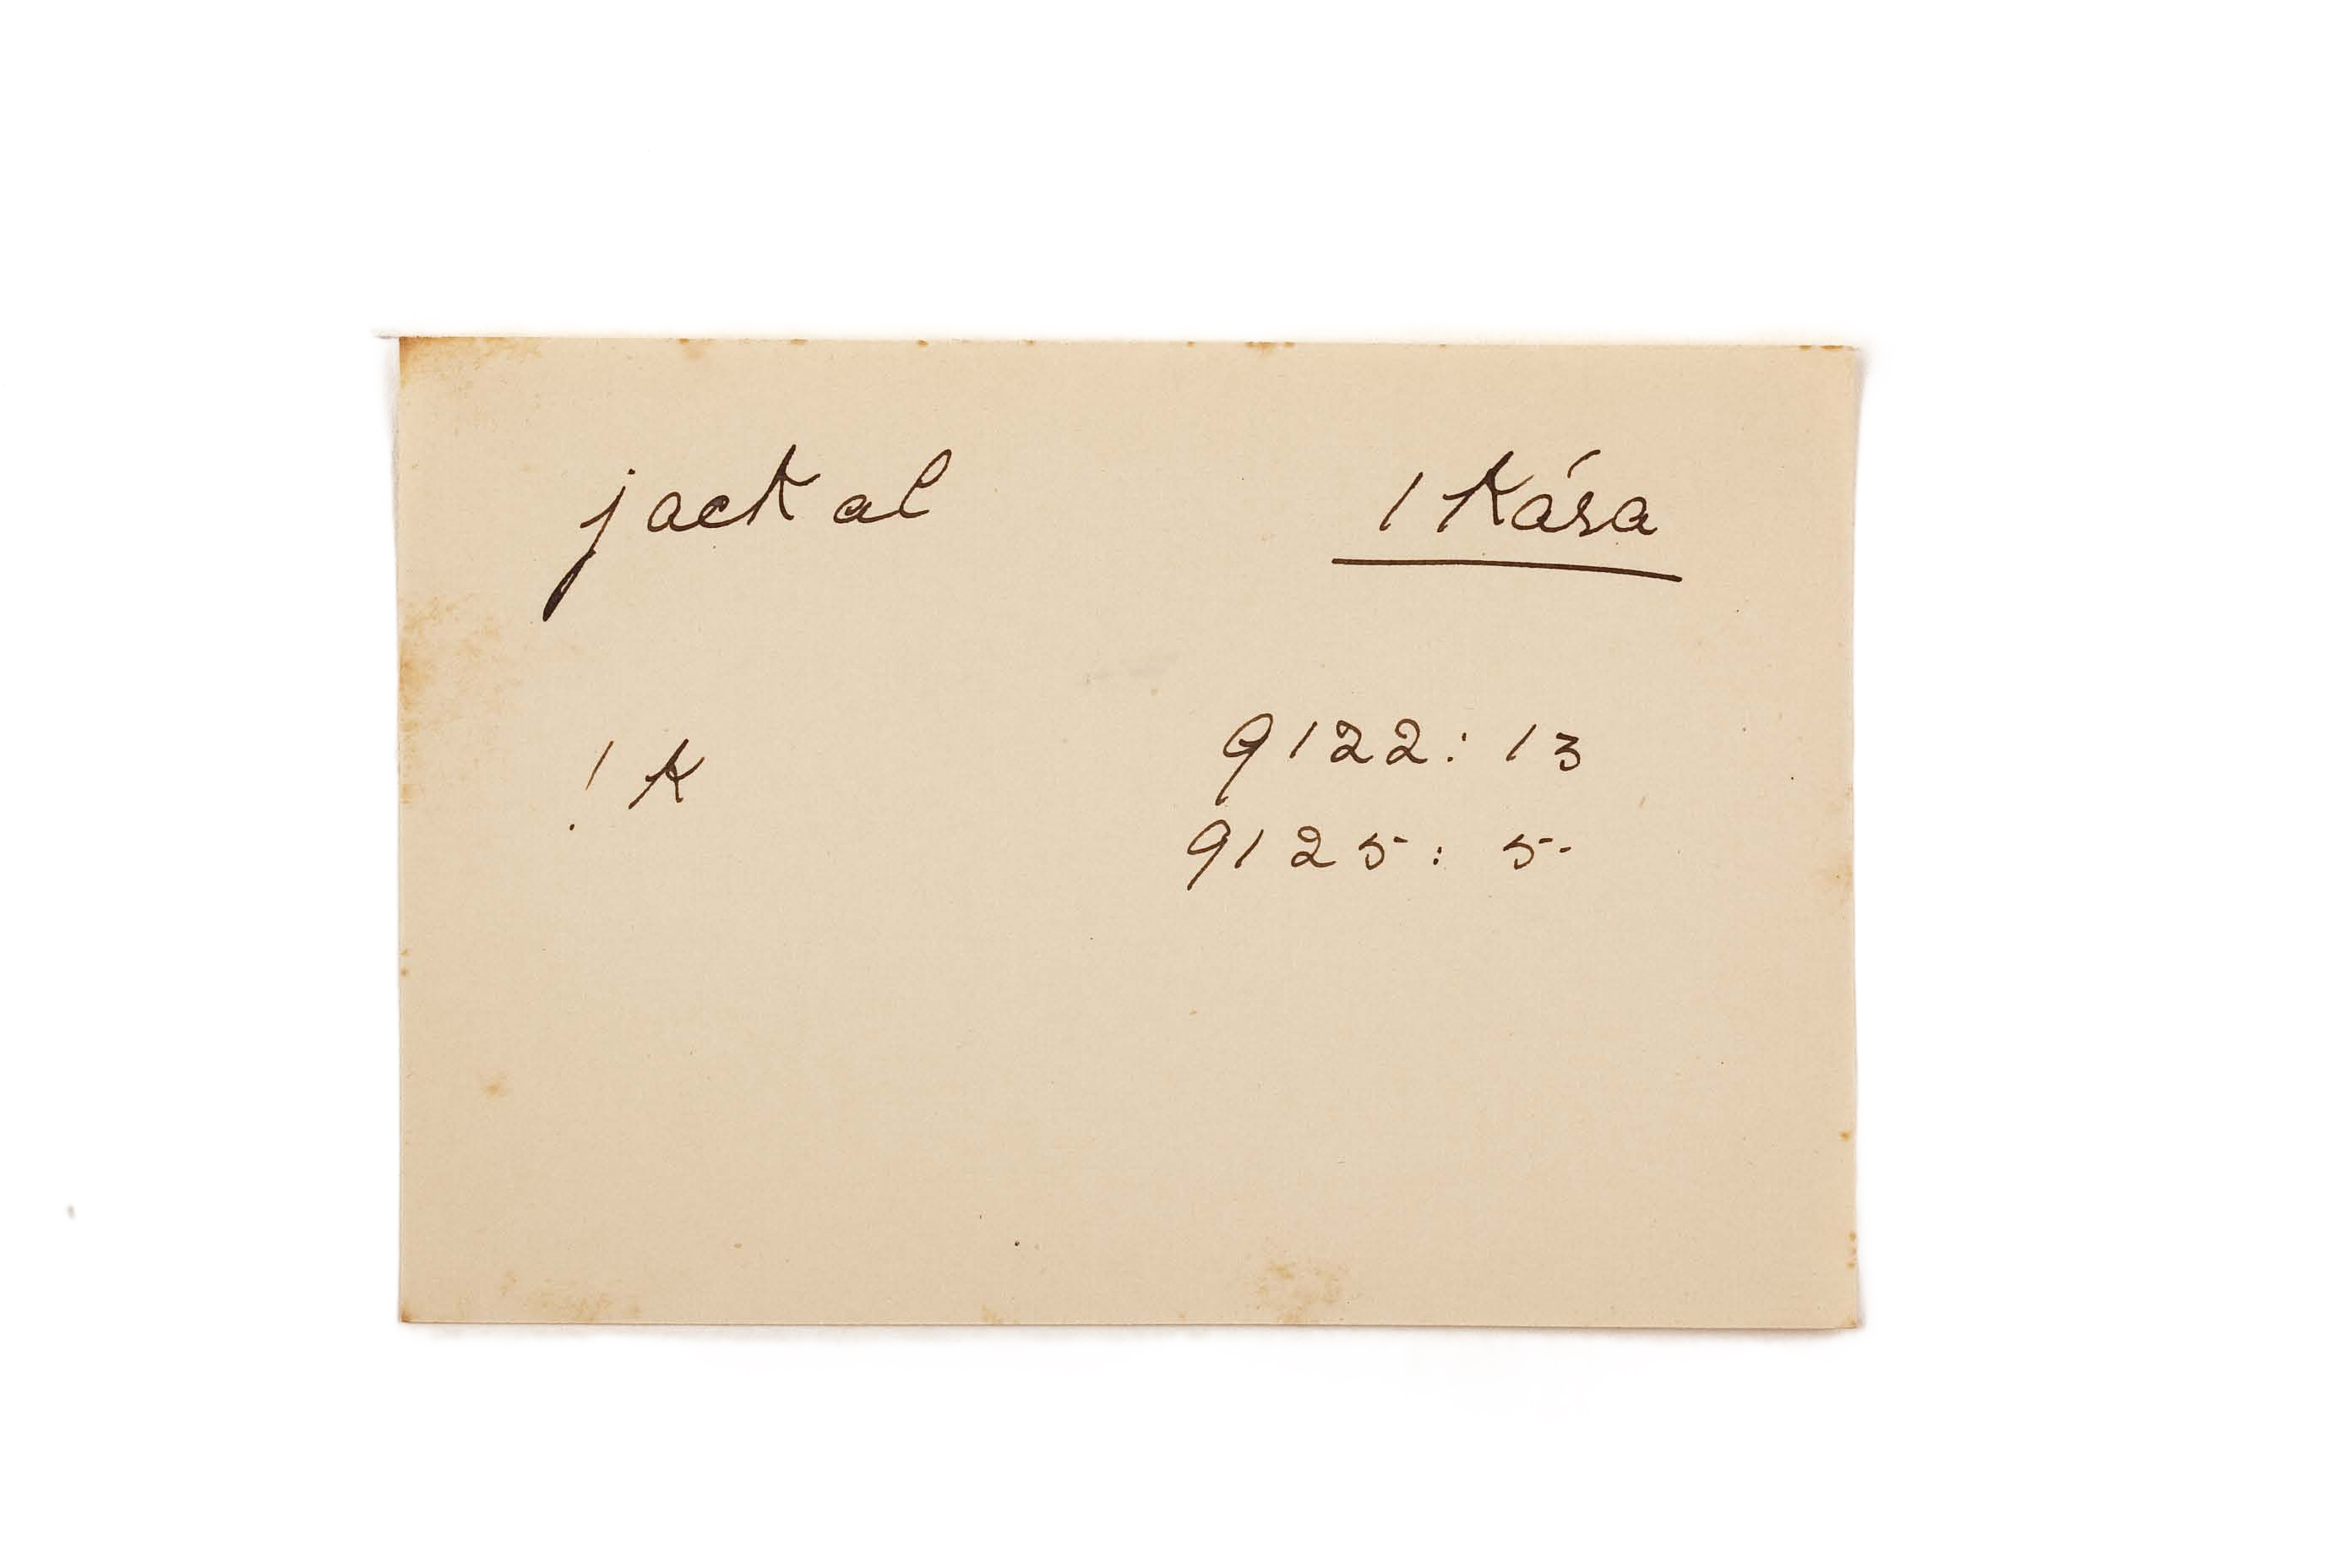 jackal /Kása
!K 9122: 13
9125: 5.